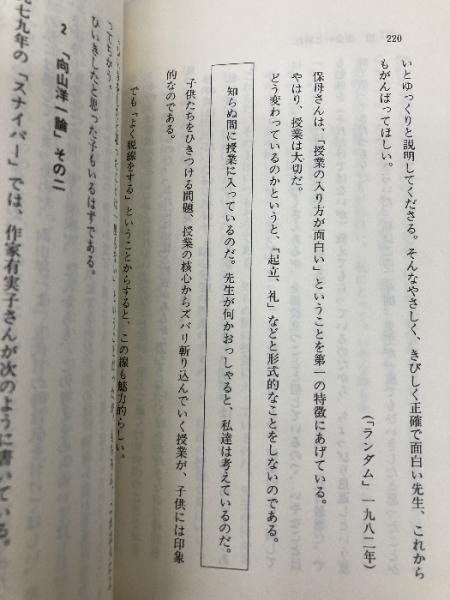 220
いとゆっくりと説明してくださる。そんなやさしく、きびしく正確で面白い先生、これから
もがんばってほしい。
(「ランダム」一九八二年)
保母さんは、「授業の入り方が面白い」ということを第一の特徴にあげている。
やはり、授業は大切だ。
どう変わっているのかというと、「起立、礼」などと形式的なことをしないのである。
知らぬ間に授業に入っているのだ。先生が何かおっしゃると、私達は考えているのだ。
子供たちをひきつける問題、授業の核心からズバリ斬り込んでいく授業が、子供には印象
的なのである。
でも「よく脱線をする」ということからすると、この線も魅力的らしい。
ってちがう。
ひいきしたと思った子もいるはずである。
2 「向山洋一論」その二
七九年の「スナイパー」では、作家有実子さんが次のように書いている。